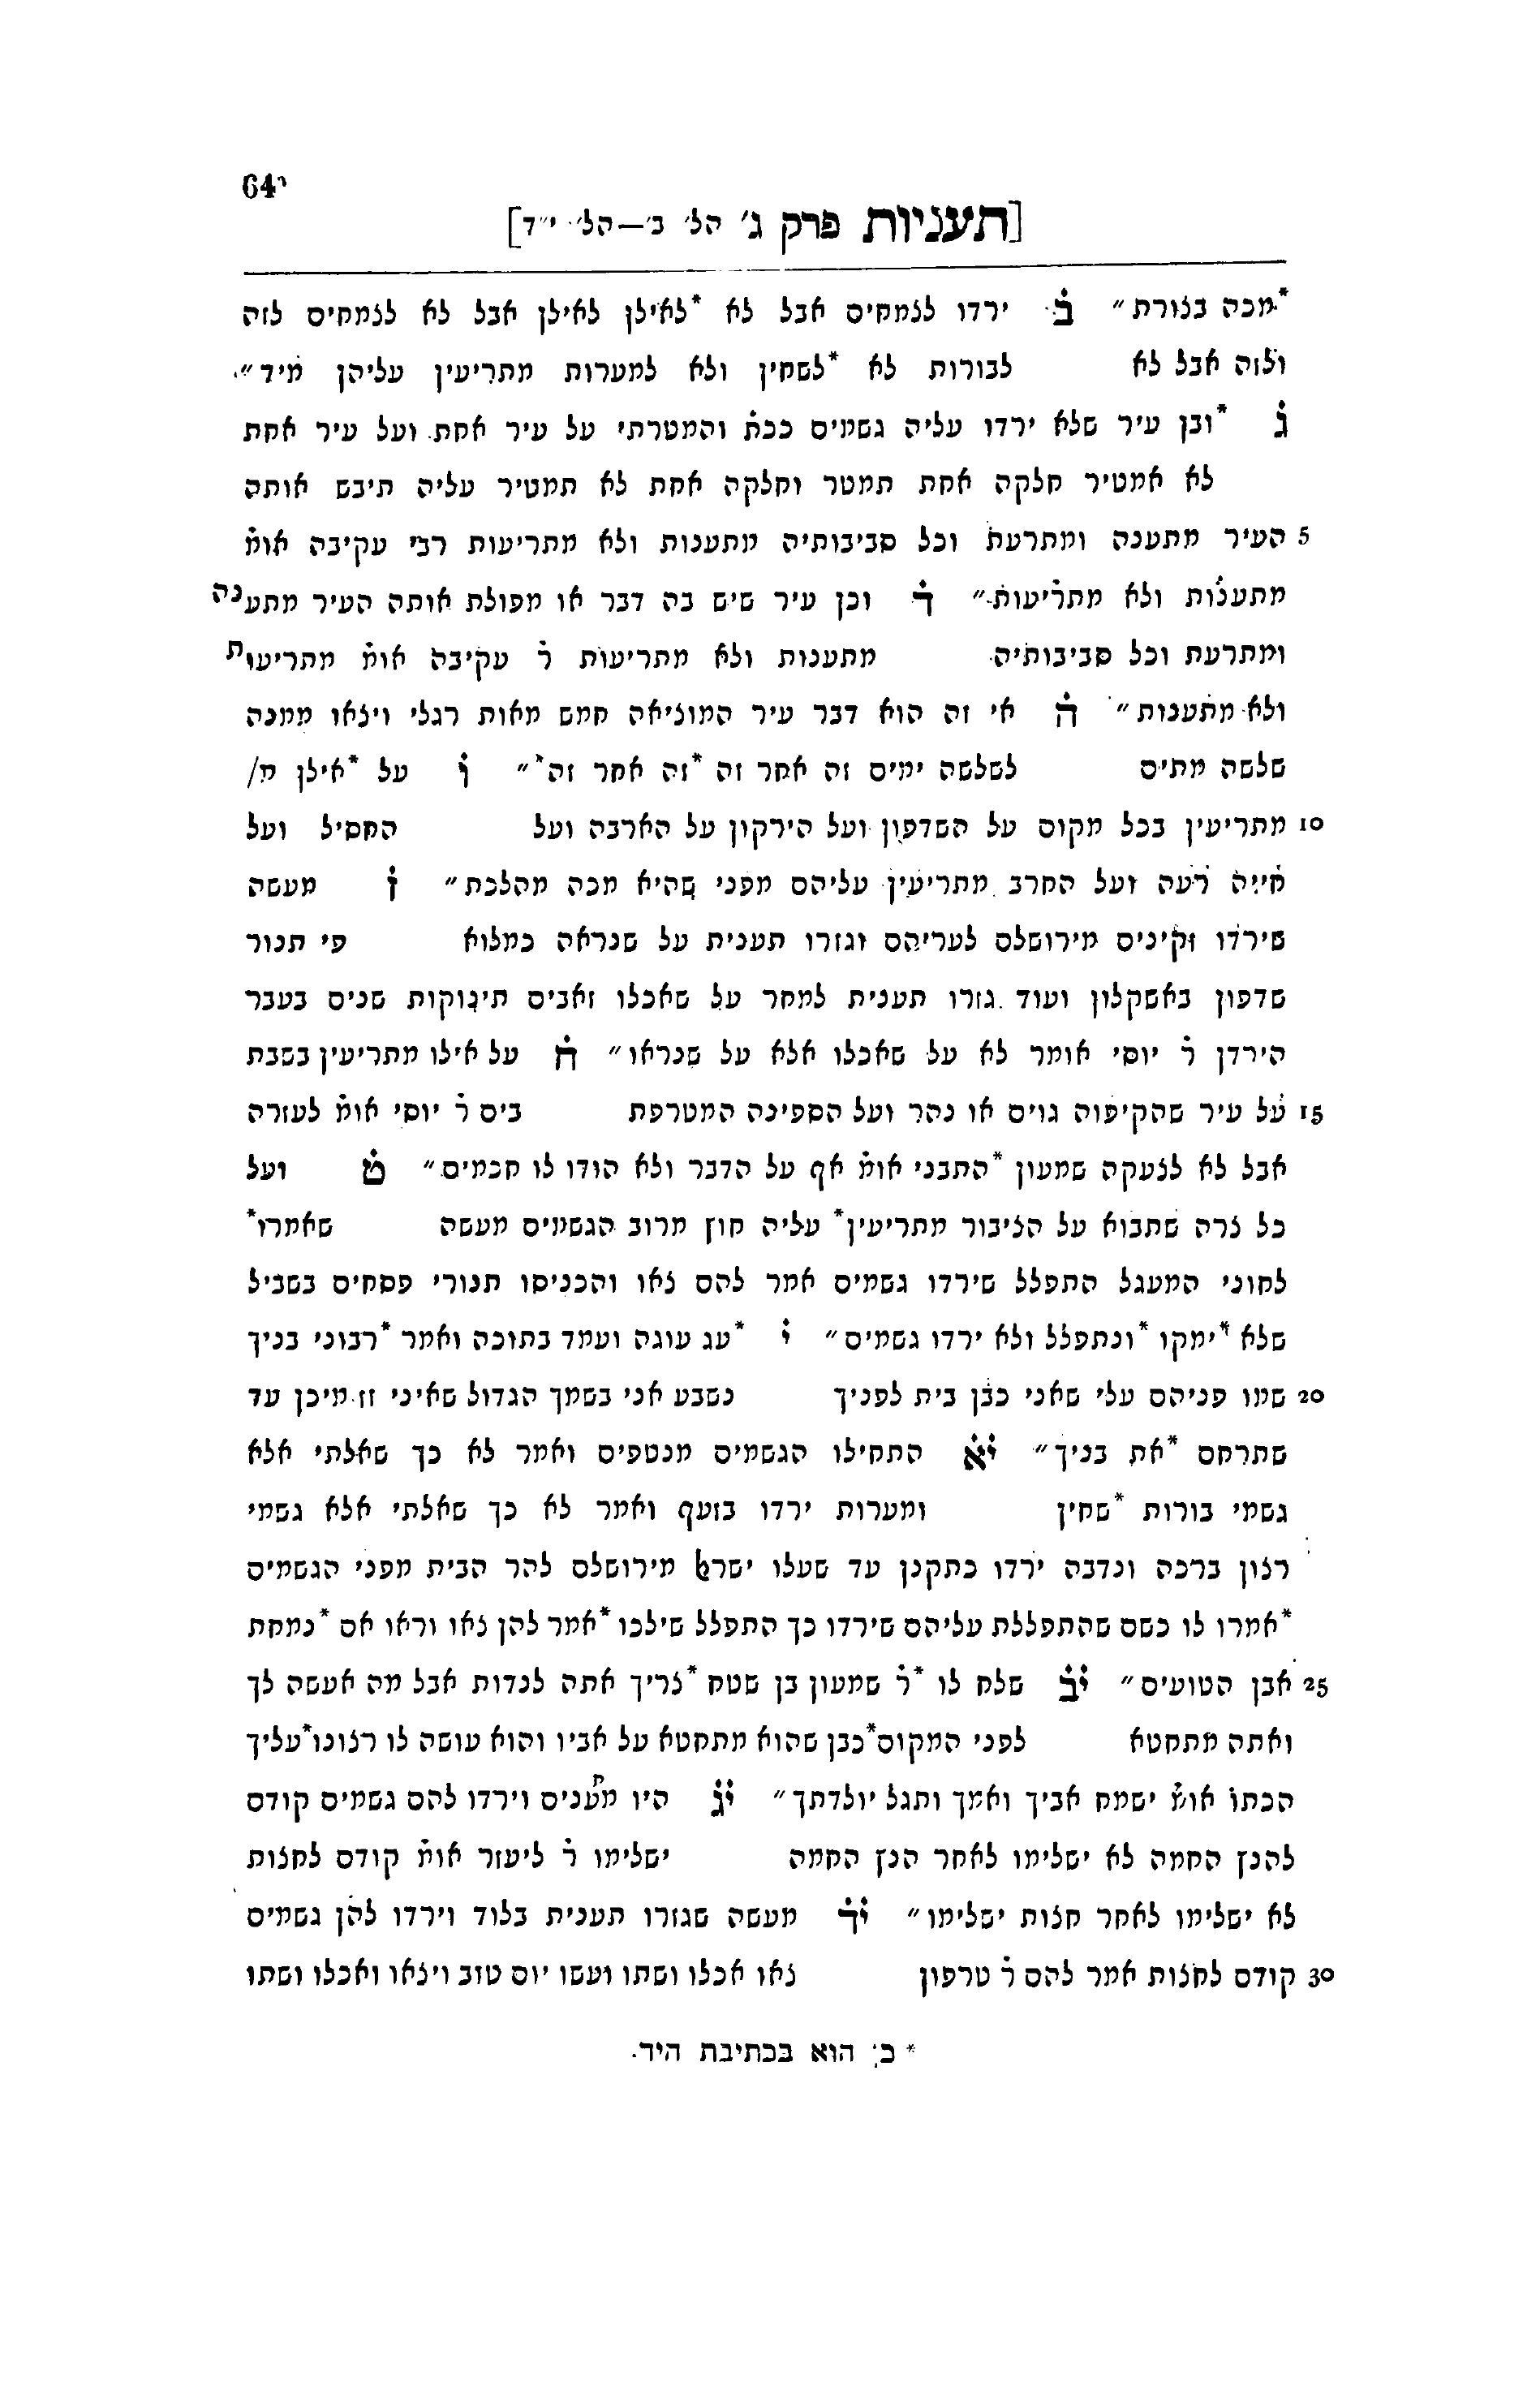 64י
[תעניות פרק ג׳ הל׳ ב׳—הל׳ י״ד]
*מכה בצורת״ ב ירדו לצמחים אבל לא *לאילן לאילן אבל לא לצמחים לזה
ולזה אבל לא לבורות לא *לשחין ולא למערות מתריעין עליהן מיד״
ג *ובן עיר שלא ירדו עליה גשמים ככת̇ והמטרתי על עיר אחת ועל עיר אחת
לא אמטיר חלקה אחת תמטר וחלקה אחת לא תמטיר עליה תיבש אותה
5 העיר מתענה ומתרעת וכל סביבותיה מתענות ולא מתריעות רבי עקיבה אומ̇
מתענות ולא מתריעות״ ד וכן עיר שיש בה דבר או מפולת אותה העיר מתענה
ומתרעת וכל סביבותיה מתענות ולא מתריעות ר̇ עקיבה אומ̇ מתריעות
ולא מתענות״ ה אי זה הוא דבר עיר המוציאה חמש מאות רגלי ויצאו ממנה
שלשה מתים לשלשה ימים זה אחר זה *זה אחר זה*״ ו על *אילן מ/
10 מתריעין בכל מקום על השדפון ועל הירקון על הארבה ועל החסיל ועל
חייה רעה ועל החרב מתריעין עליהם מפני שהיא מכה מהלכת״ ז מעשה
שירדו זקינים מירושלם לעריהם וגזרו תענית על שנראה כמלוא פי תנור
שדפון באשקלון ועוד גזרו תענית למחר על שאכלו זאבים תינוקות שנים בעבר
הירדן ר̇ יוסי אומר לא על שאכלו אלא על שנראו״ ח על אילו מתריעין בשבת
15 על עיר שהקיפוה גוים או נהר ועל הספינה המטרפת בים ר̇ יוסי אומ̇ לעזרה
אבל לא לצעקה שמעון *התבני אומ̇ אף על הדבר ולא הודו לו חכמים״ ט ועל
כל צרה שתבוא על הציבור מתריעין* עליה חוץ מרוב הגשמים מעשה שאמרו*
לחוני המעגל התפלל שירדו גשמים אמר להם צאו והכניסו תנורי פסחים בשביל
שלא *ימקו *ונתפלל ולא ירדו גשמים״ י *עג עוגה ועמד בתוכה ואמר *רבוני בניך
20 שמו פניהם עלי שאני כבן בית לפניך נשבע אני בשמך הגדול שאיני זז מיכן עד
שתרחם *את בניך״ יא התחילו הגשמים מנטפים ואמר לא כך שאלתי אלא
גשמי בורות *שחין ומערות ירדו בזעף ואמר לא כך שאלתי אלא גשמי
רצון ברכה ונדבה ירדו כתקנן עד שעלו ישרﭏ מירושלם להר הבית מפני הגשמים
*אמרו לו כשם שהתפללת עליהם שירדו כך התפלל שילכו *אמר להן צאו וראו אם *נמחת
25 אבן הטועים״ יב שלח לו *ר̇ שמעון בן שטח *צריך אתה לנדות אבל מה אעשה לך
ואתה מתחטא לפני המקום *כבן שהוא מתחטא על אביו והוא עושה לו רצונו *עליך
הכתו̇ אומ̇ ישמח אביך ואמך ותגל יולדתך״ יג היו מתענים וירדו להם גשמים קודם
להנץ החמה לא ישלימו לאחר הנץ החמה ישלימו ר̇ ליעזר אומ̇ קודם לחצות
לא ישלימו לאחר חצות ישלימו״ יד מעשה שגזרו תענית בלוד וירדו להן גשמים
30 קודם לחצות אמר להם ר̇ טרפון צאו אכלו ושתו ועשו יום טוב ויצאו ואכלו ושתו
* כ׳ הוא בכתיבת היד.